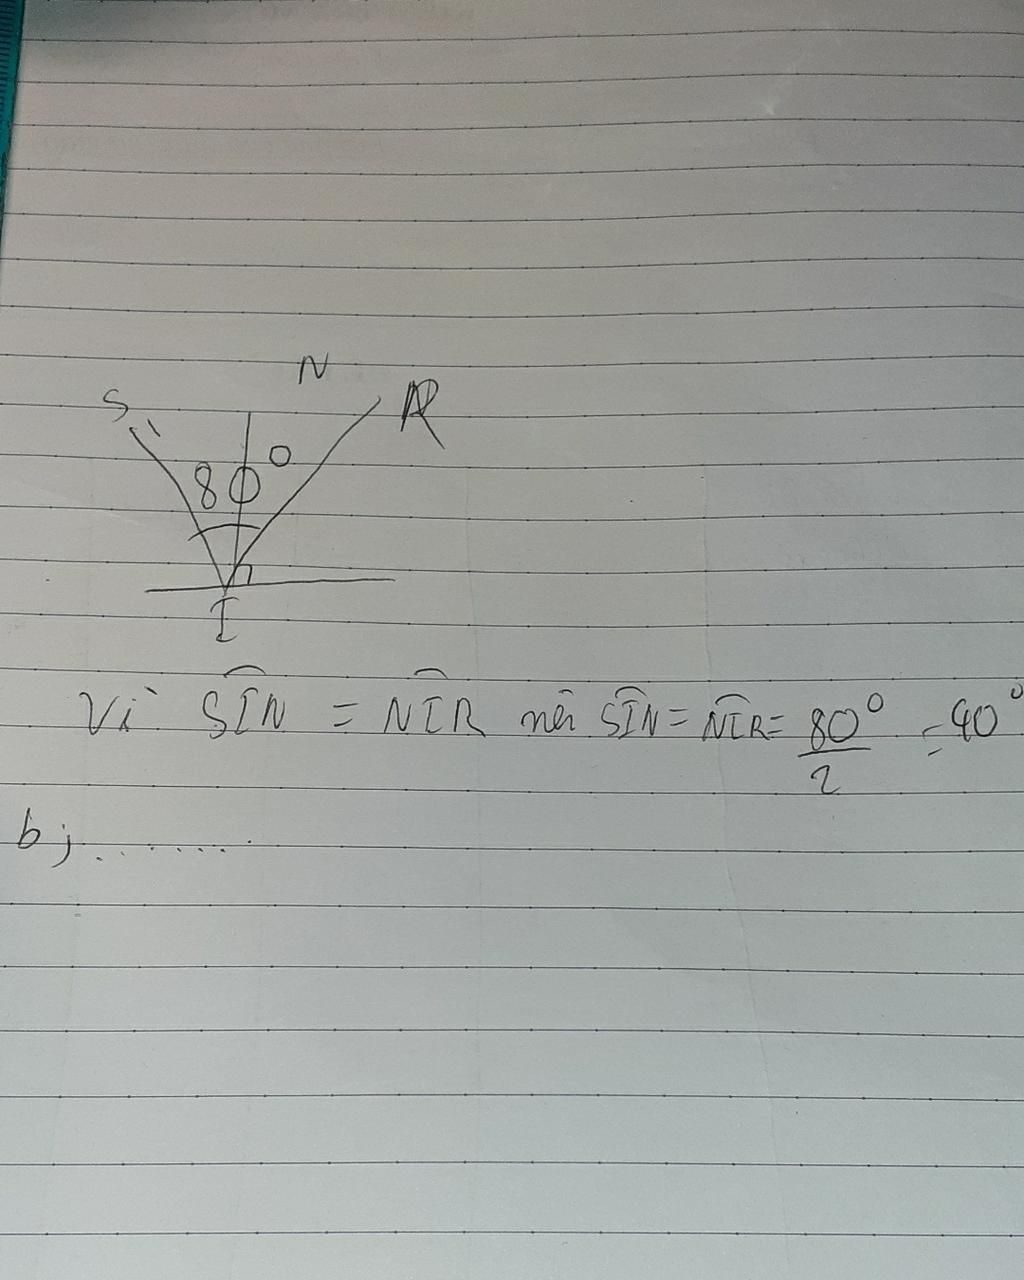 N
S
R
80°
I
Vì SIN = NIR nên SIN = NIR = 80°/2 = 40°
b; .......